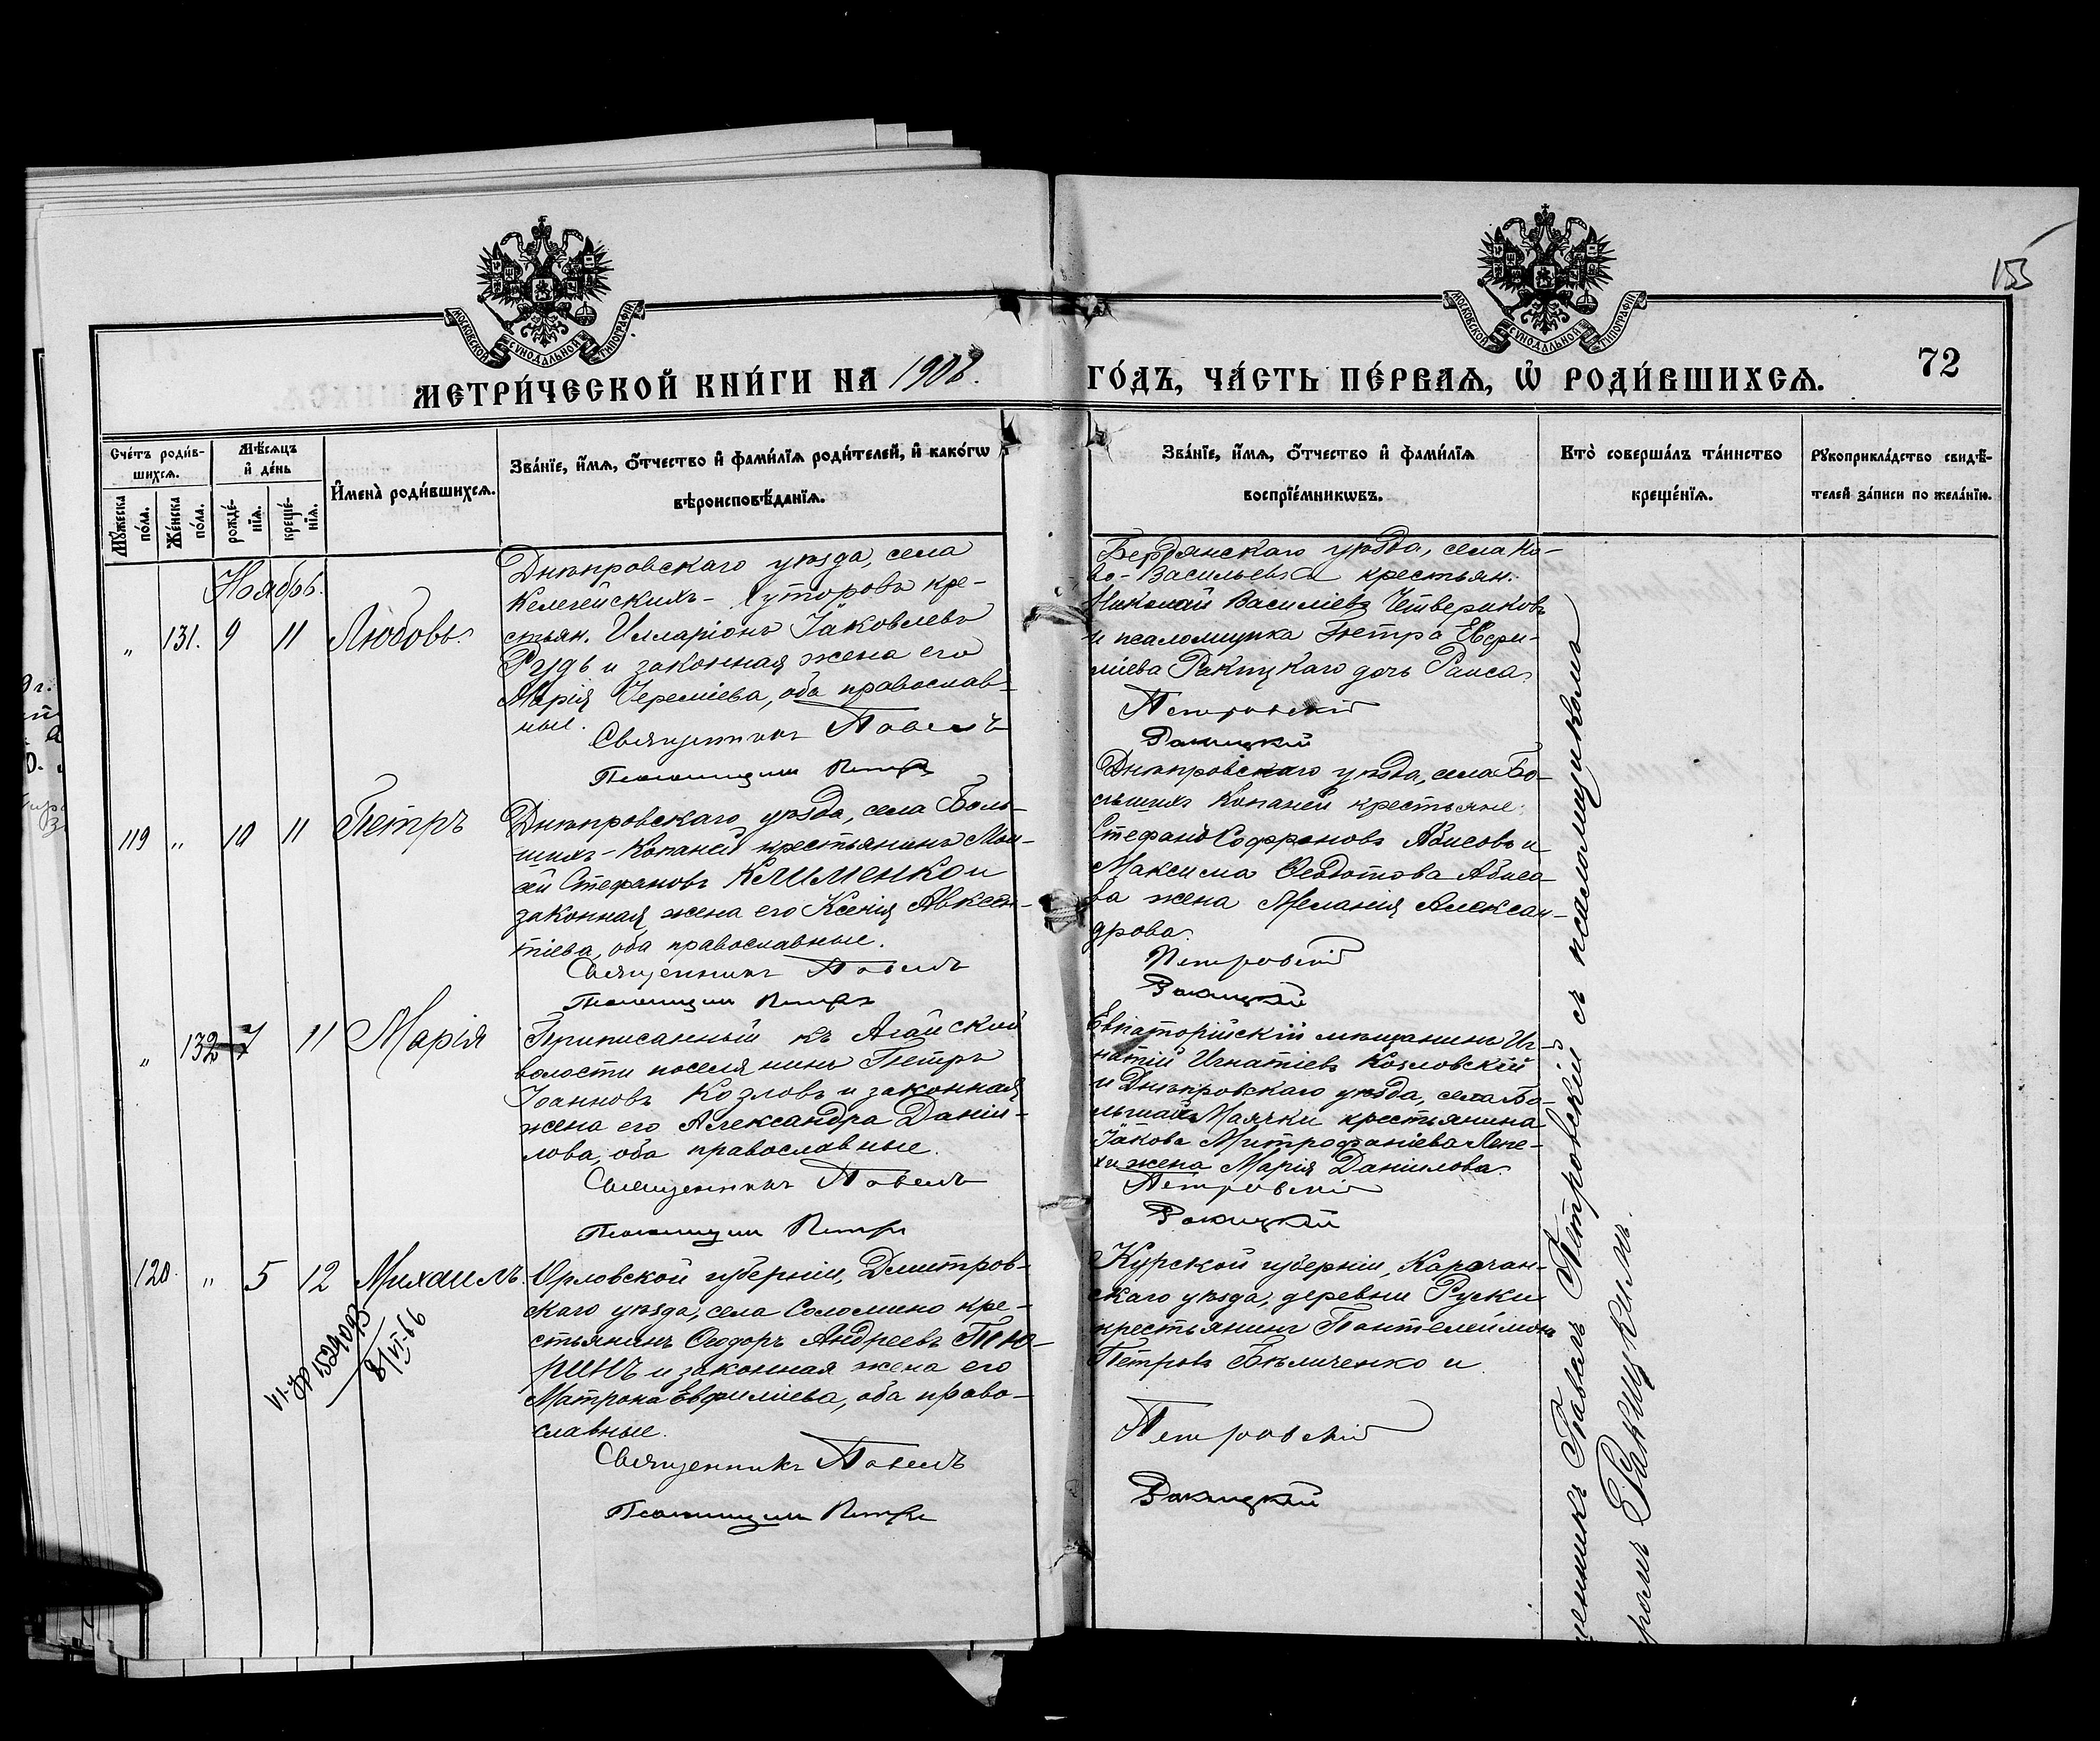 155
МОСКОВСКОЙ СѴНОДАЛЬНОЙ ТИПОГРАФІИ
МОСКОВСКОЙ СѴНОДАЛЬНОЙ ТИПОГРАФІИ
МЕТРИ́ЧЕСКОЙ КНИ́ГИ НА 1908.
ГО́ДЪ, ЧА́СТЬ ПЕ́РВАѦ, Ѡ҆ РОДИ́ВШИХСѦ.
72
Сче́тъ роди́в-
шихсѧ.
Мѣ́сѧцъ
и҆ де́нь
Мꙋ́жеска
по́ла.
Же́нска
по́ла.
рожде́-
нїѧ.
креще́-
нїѧ.
И҆мена̀ роди́вшихсѧ.
Зва́нїе, и҆́мѧ, ѻ҆́тчество и҆ фами́лїѧ роди́телей, и҆ како́гѡ
вѣроисповѣ́данїѧ.
Зва́нїе, и҆́мѧ, ѻ҆́тчество и҆ фами́лїѧ
воспрїе́мникѡвъ.
Кто̀ соверша́лъ та́инство
креще́нїѧ.
Рꙋкоприкла́дство свидѣ́-
телей за́писи по жела́нїю.
Ноябрь.
„ 131. 9 11 Любовь.
Днѣпровскаго уѣзда, села
Келегейскихъ- Хуторовъ кре-
стьян. Илларіонъ Іаковлевъ
Рудь и законная жена его
Марія Іереміева, оба православ-
ные.
Священникъ Павелъ
Псаломщикъ Петръ
Бердянскаго уѣзда, села Но-
во-Васильевки крестьян.
Николай Василіевъ Четвериковъ
и псаломщика Петра Евфи-
міева Ракицкаго дочь Раиса.
Петровскій
Ракицкій
119 „ 10 11 Петръ
Днѣпровскаго уѣзда, села Боль-
шихъ-Копаней крестьянинъ Мои-
сей Стефановъ Клименко и
законная жена его Ксенія Авксен-
тіева, оба православные.
Священникъ Павелъ
Псаломщикъ Петръ
Днѣпровскаго уѣзда, села Бо-
льшихъ Копаней крестьяне:
Стефанъ Софроновъ Абисовъ и
Максима Ѳеодотова Абисо-
ва жена Меланія Алексан-
дрова.
Петровскій
Ракицкій
„ 132 7 11 Марія
Приписанный къ Агайской
волости поселянинъ Петръ
Іоанновъ Козловъ и законная
жена его Александра Даніи-
лова, оба православные.
Священникъ Павелъ
Псаломщикъ Петръ
Евпаторійскій мѣщанинъ Иг-
натій Игнатіевъ Козловскій
и Днѣпровскаго уѣзда, села Бо-
льшой Маячки крестьянина
Іакова Митрофаніева Лепе-
хи жена Марія Даніилова.
Петровскій
Ракицкій
120. „ 5 12 Михаилъ.
Орловской губерніи, Дмитров-
скаго уѣзда, села Соломино кре-
стьянинъ Ѳеодоръ Андреевъ Тю-
ринъ и законная жена его
Матрона Евфиміева, оба право-
славные.
Священникъ Павелъ
Псаломщикъ Петръ
Курской губерніи,
скаго уѣзда, деревни
крестьянинъ Пантелеймонъ
Петровъ Бѣличенко и
Петровскій
Ракицкій
Павелъ Петровскій съ псаломщикомъ
Ракицкимъ.